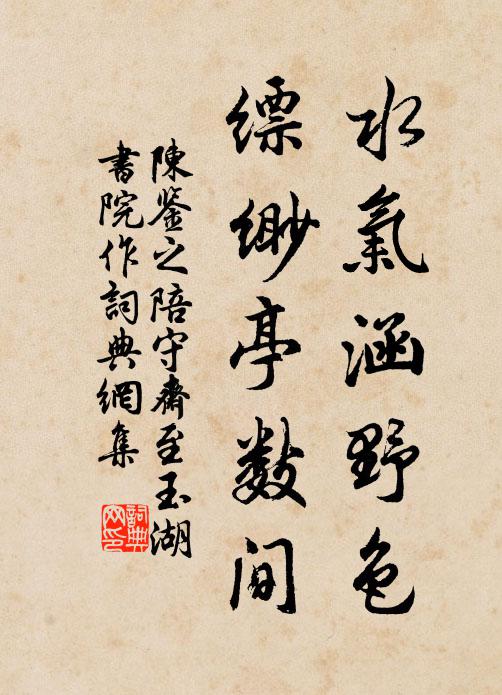 水氣涵野色
缥缈亭數间
陳鉴之陪守齋至玉湖
書院作詞典網集
詞典网印